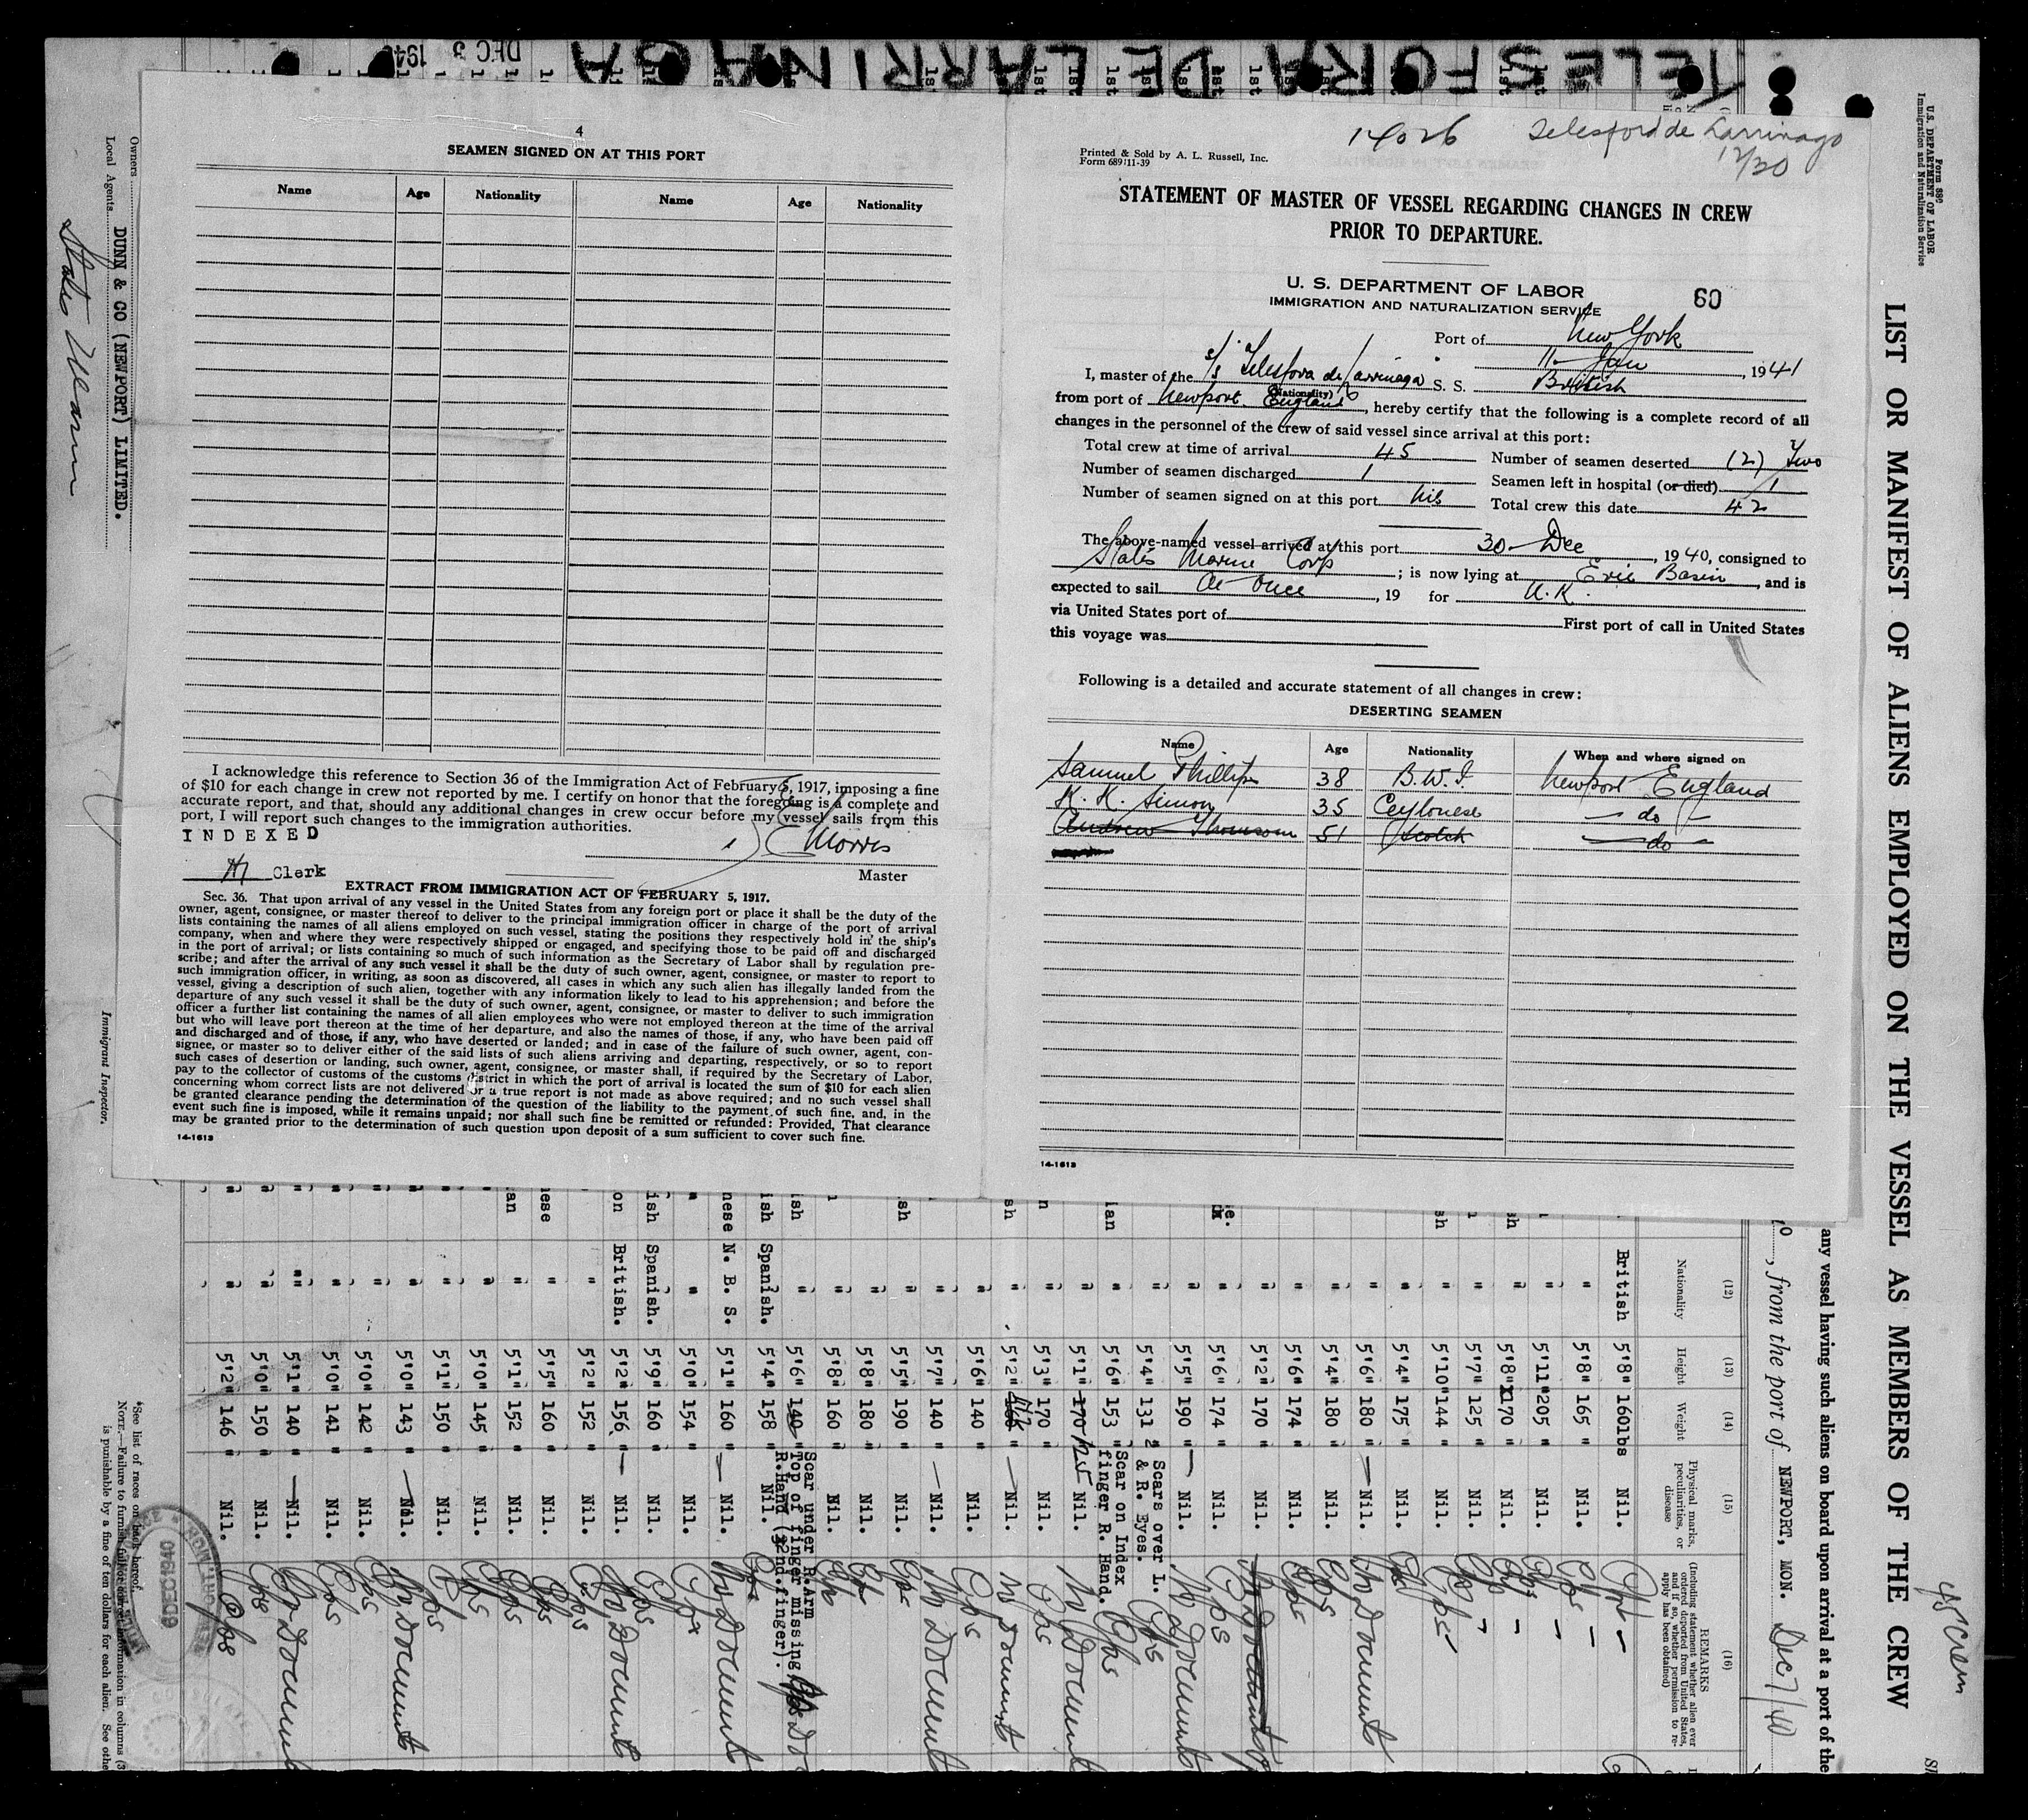 TELESFORA DE LARRINAGA
DEC 3 194
4
SEAMEN SIGNED ON AT THIS PORT
Name Age Nationality Name Age Nationality
I acknowledge this reference to Section 36 of the Immigration Act of February 5, 1917, imposing a fine
of $10 for each change in crew not reported by me. I certify on honor that the foregoing is a complete and
accurate report, and that, should any additional changes in crew occur before my vessel sails from this
port, I will report such changes to the immigration authorities.
INDEXED
Morris
Clerk
Master
EXTRACT FROM IMMIGRATION ACT OF FEBRUARY 5, 1917.
Sec. 36. That upon arrival of any vessel in the United States from any foreign port or place it shall be the duty of the
owner, agent, consignee, or master thereof to deliver to the principal immigration officer in charge of the port of arrival
lists containing the names of all aliens employed on such vessel, stating the positions they respectively hold in the ship's
company, when and where they were respectively shipped or engaged, and specifying those to be paid off and discharged
in the port of arrival; or lists containing so much of such information as the Secretary of Labor shall by regulation pre-
scribe; and after the arrival of any such vessel it shall be the duty of such owner, agent, consignee, or master to report to
such immigration officer, in writing, as soon as discovered, all cases in which any such alien has illegally landed from the
vessel, giving a description of such alien, together with any information likely to lead to his apprehension; and before the
departure of any such vessel it shall be the duty of such owner, agent, consignee, or master to deliver to such immigration
officer a further list containing the names of all alien employees who were not employed thereon at the time of the arrival
but who will leave port thereon at the time of her departure, and also the names of those, if any, who have been paid off
and discharged and of those, if any, who have deserted or landed; and in case of the failure of such owner, agent, con-
signee, or master so to deliver either of the said lists of such aliens arriving and departing, respectively, or so to report
such cases of desertion or landing, such owner, agent, consignee, or master shall, if required by the Secretary of Labor,
pay to the collector of customs of the customs district in which the port of arrival is located the sum of $10 for each alien
concerning whom correct lists are not delivered or a true report is not made as above required; and no such vessel shall
be granted clearance pending the determination of the question of the liability to the payment of such fine, and, in the
event such fine is imposed, while it remains unpaid; nor shall such fine be remitted or refunded: Provided, That clearance
may be granted prior to the determination of such question upon deposit of a sum sufficient to cover such fine.
14-1613
14026 Telesford de Larrinago
12/30
Printed & Sold by A. L. Russell, Inc.
Form 689:11-39
STATEMENT OF MASTER OF VESSEL REGARDING CHANGES IN CREW
PRIOR TO DEPARTURE.
U. S. DEPARTMENT OF LABOR
IMMIGRATION AND NATURALIZATION SERVICE
60
Port of New York
11 Jan, 1941
I, master of the S/S Telesfora de Larrinaga S. S. British
(Nationality)
from port of Newport England, hereby certify that the following is a complete record of all
changes in the personnel of the crew of said vessel since arrival at this port:
Total crew at time of arrival 45 Number of seamen deserted (2) Two
Number of seamen discharged 1 Seamen left in hospital (or died) 1
Number of seamen signed on at this port Nil Total crew this date 42
The above-named vessel arrived at this port 30 Dec, 1940, consigned to
States Marine Corp; is now lying at Erie Basin, and is
expected to sail At Once, 19 for U.K.
via United States port of First port of call in United States
this voyage was
Following is a detailed and accurate statement of all changes in crew:
DESERTING SEAMEN
Name Age Nationality When and where signed on
Samuel Phillips 38 B.W.I. Newport England
K. K. Simon 35 Ceylonese — do —
Andrew Thomson 51 Scotch — do —
14-1613
Owners
Local Agents DUNN & CO (NEWPORT) LIMITED.
States Marine
Immigrant Inspector.
U.S. DEPARTMENT OF LABOR
Immigration and Naturalization Service
LIST OR MANIFEST OF ALIENS EMPLOYED ON THE VESSEL AS MEMBERS OF THE CREW
any vessel having such aliens on board upon arrival at a port of the
, from the port of NEWPORT, MON. Dec 7/40
(12) (13) (14) (15) (16)
Nationality Height Weight Physical marks, peculiarities, or disease REMARKS
(Including statement whether alien ever ordered deported from United States, and if so, whether permission to re-apply has been obtained)
British 5'8" 160lbs Nil.
" 5'8" 165 " Nil.
" 5'11" 205 " Nil.
" 5'8" 170 " Nil.
" 5'7" 125 " Nil.
" 5'10" 144 " Nil.
" 5'4" 175 " Nil.
" 5'6" 180 " Nil. No Document
" 5'4" 180 " Nil.
" 5'6" 174 " Nil.
" 5'2" 170 " Nil. No Document
" 5'6" 174 " Nil.
" 5'5" 190 " Nil. No Document
" 5'4" 131 " Scars over L. & R. Eyes.
" 5'6" 153 " Scar on Index finger R. Hand.
" 5'1" 170 125 Nil. No Document
" 5'3" 170 " Nil.
" 5'2" Nil. No Document
" 5'6" 140 " Nil.
" 5'7" 140 " Nil. No Document
" 5'5" 190 " Nil.
" 5'8" 180 " Nil.
" 5'8" 160 " Nil.
" 5'6" 140 " Scar under R.Arm Top of finger missing R.Hand (2nd.finger).
Spanish. 5'4" 158 " Nil.
N. B. S. 5'1" 160 " Nil. No Document
" 5'0" 154 " Nil.
Spanish. 5'9" 160 " Nil.
British. 5'2" 156 " Nil. No Document
" 5'2" 152 " Nil.
" 5'5" 160 " Nil.
" 5'1" 152 " Nil.
" 5'0" 145 " Nil.
" 5'1" 150 " Nil.
" 5'0" 143 " Nil. No Document
" 5'0" 142 " Nil.
" 5'0" 141 " Nil.
" 5'1" 140 " Nil. No Document
" 5'0" 150 " Nil.
" 5'2" 146 " Nil.
*See list of races on back hereof.
NOTE.—Failure to furnish full or correct information in columns (3
is punishable by a fine of ten dollars for each alien. See othe